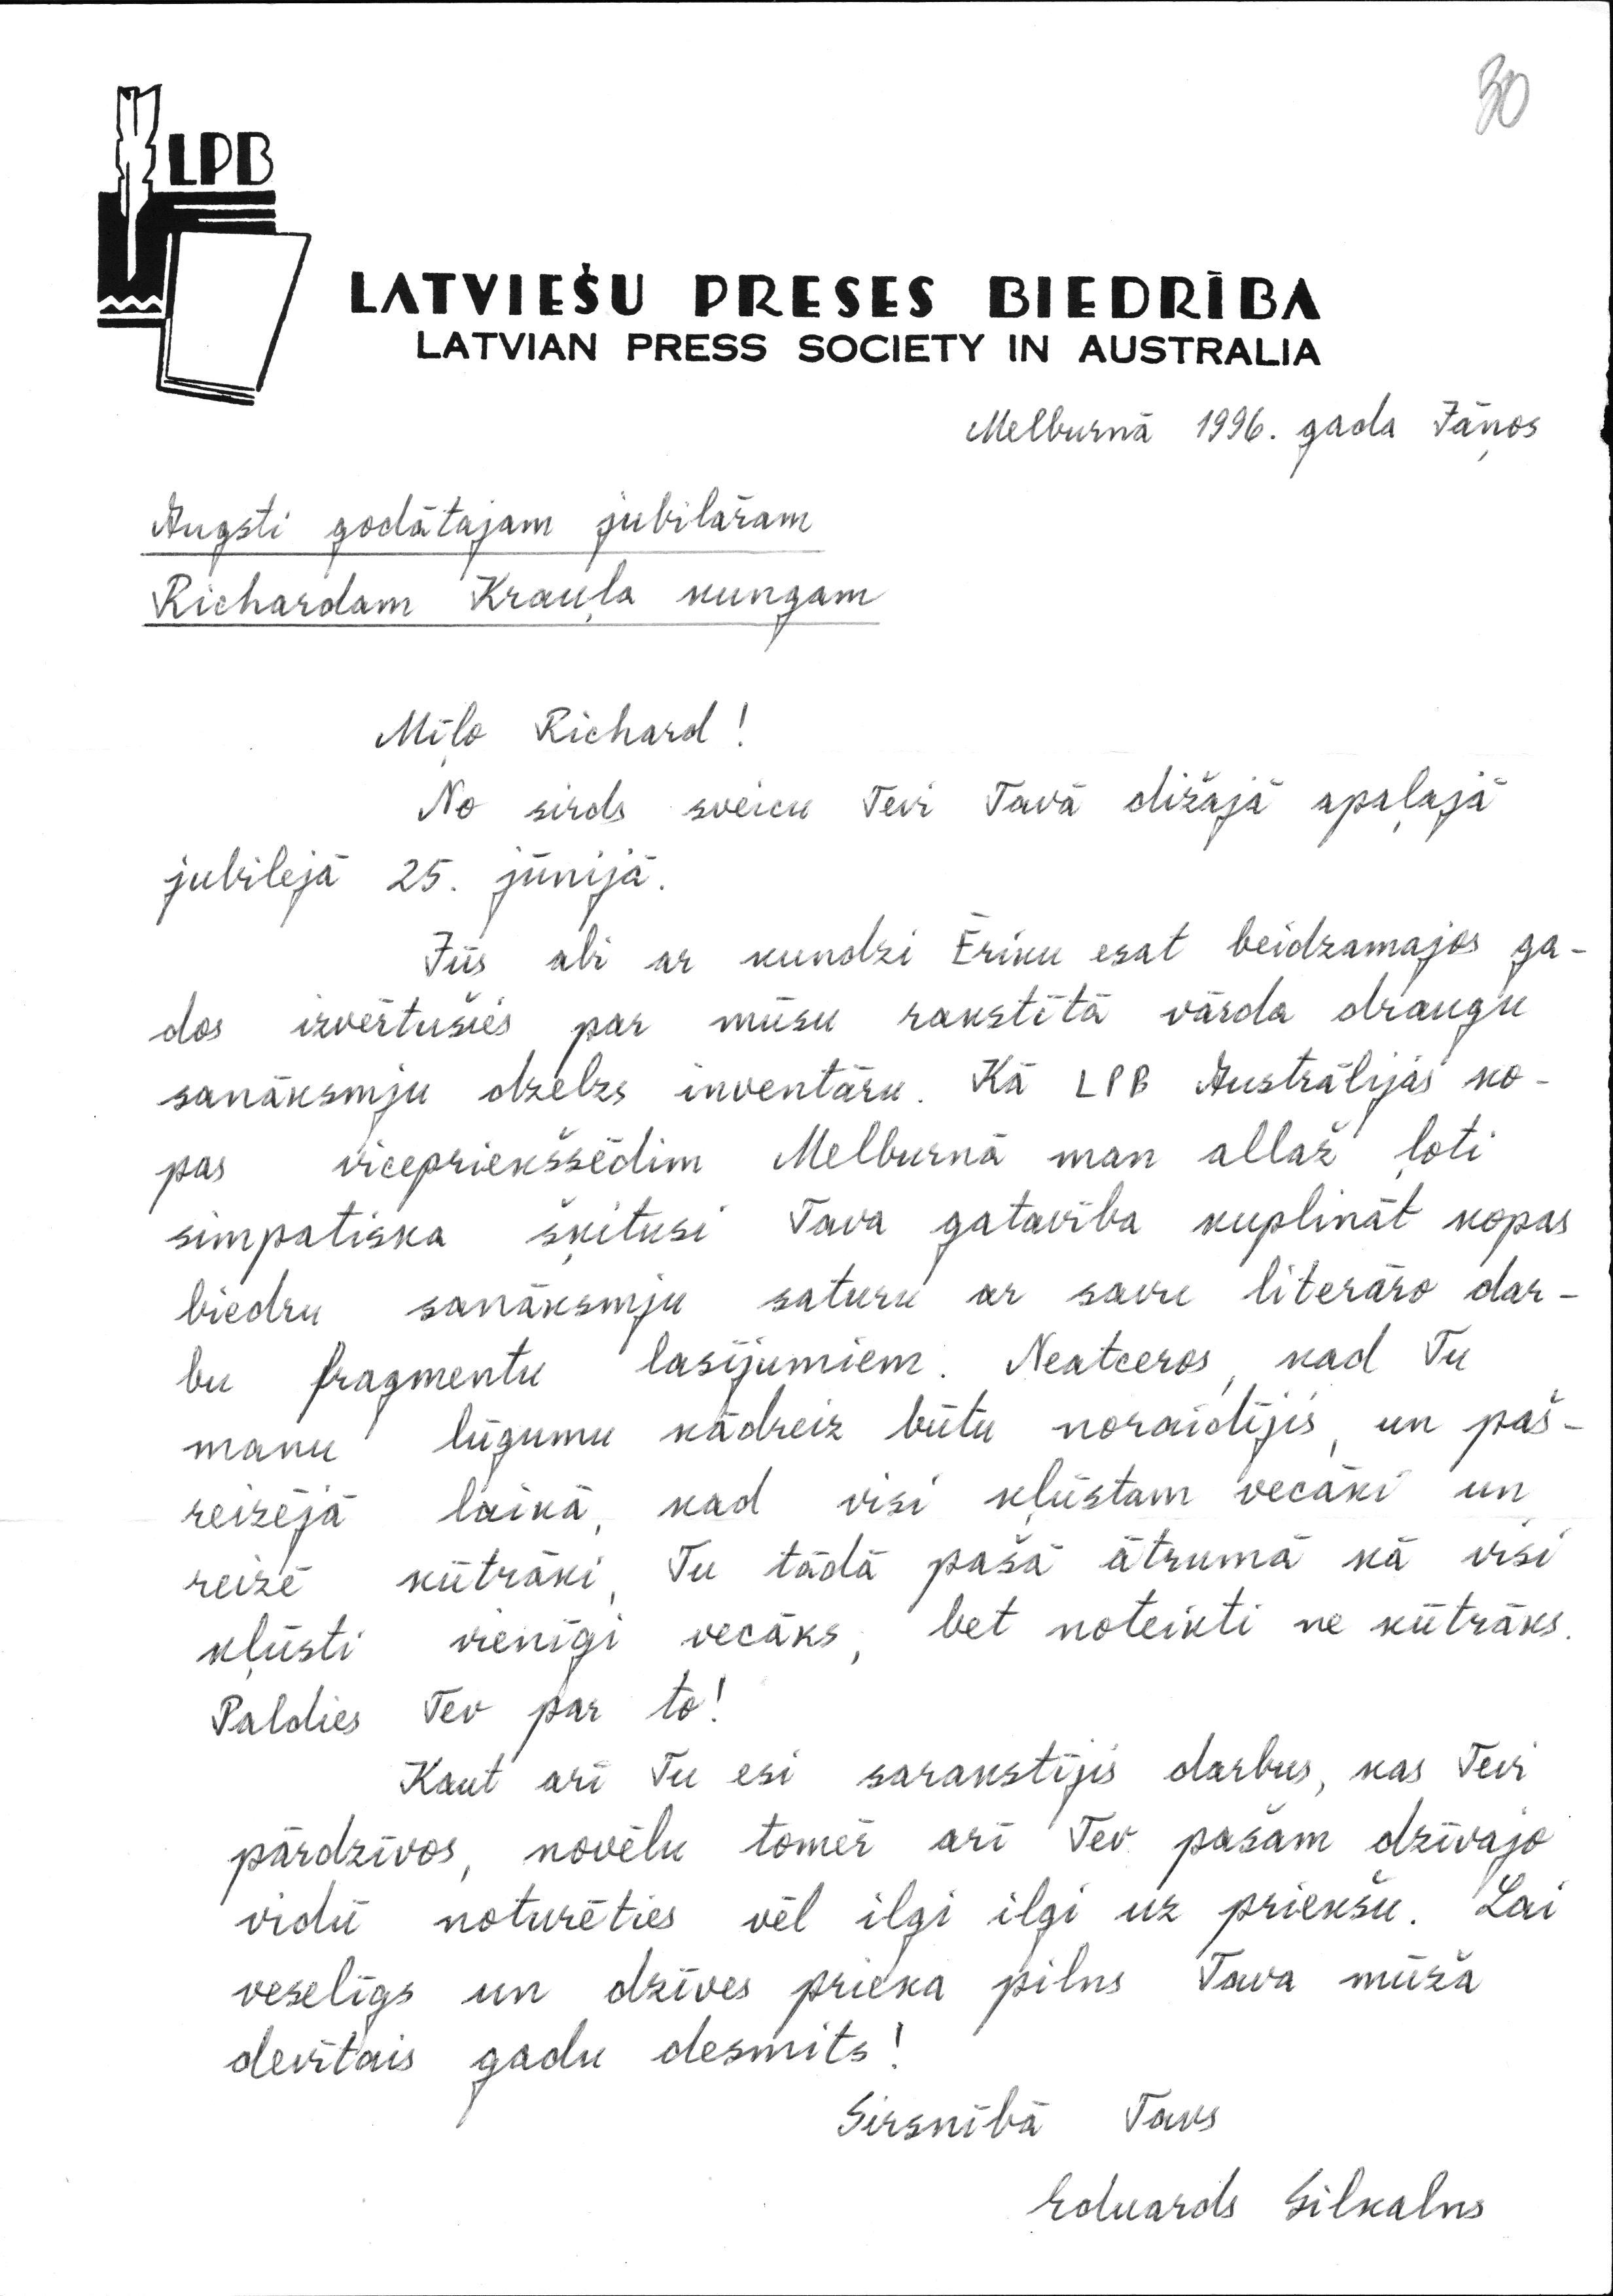 30
LPB
LATVIEŠU PRESES BIEDRĪBA
LATVIAN PRESS SOCIETY IN AUSTRALIA
Melburnā 1996. gada Jāņos
Augsti godātajam jubilāram
Richardam Krauļa kungam
Mīļo Richard!
No sirds sveicu Tevi Tavā dižajā apaļajā
jubilejā 25. jūnijā.
Jūs abi ar kundzi Ēriku esat beidzamajos ga-
dos izvērtušies par mūsu rakstītā vārda draugu
sanāksmju dzelzs inventāru. Kā LPB Austrālijas ko-
pas vicepriekšsēdim Melburnā man allaž ļoti
simpatiska šķitusi Tava gatavība kuplināt kopas
biedru sanāksmju saturu ar savu literāro dar-
bu fragmentu lasījumiem. Neatceros, kad Tu
manu lūgumu kādreiz būtu noraidījis, un paš-
reizējā laikā, kad visi kļūstam vecāki un
reizē kūtrāki, Tu tādā pašā ātrumā kā visi
kļūsti vienīgi vecāks, bet noteikti ne kūtrāks.
Paldies Tev par to!
Kaut arī Tu esi sarakstījis darbus, kas Tevi
pārdzīvos, novēlu tomēr arī Tev pašam dzīvajo
vidū noturēties vēl ilgi ilgi uz priekšu. Lai
veselīgs un dzīves prieka pilns Tava mūža
devītais gadu desmits!
Sirsnībā Tavs
Eduards Silkalns